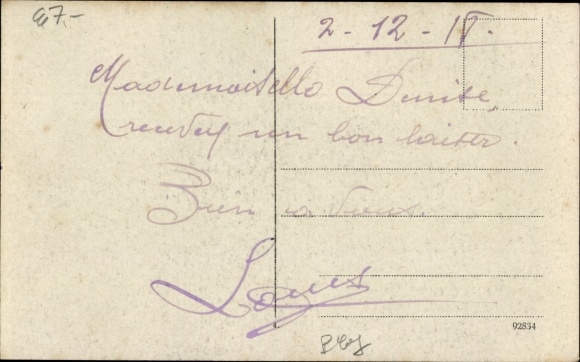 97.-
2-12-18.
Mademoiselle Denise,
recevez un bon baiser.
Bien a Vous.
Louis
92834